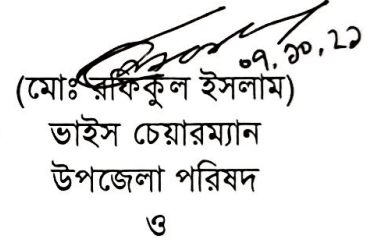 ০৭.১০.২১
(মোঃ রফিকুল ইসলাম)
ভাইস চেয়ারম্যান
উপজেলা পরিষদ
ও